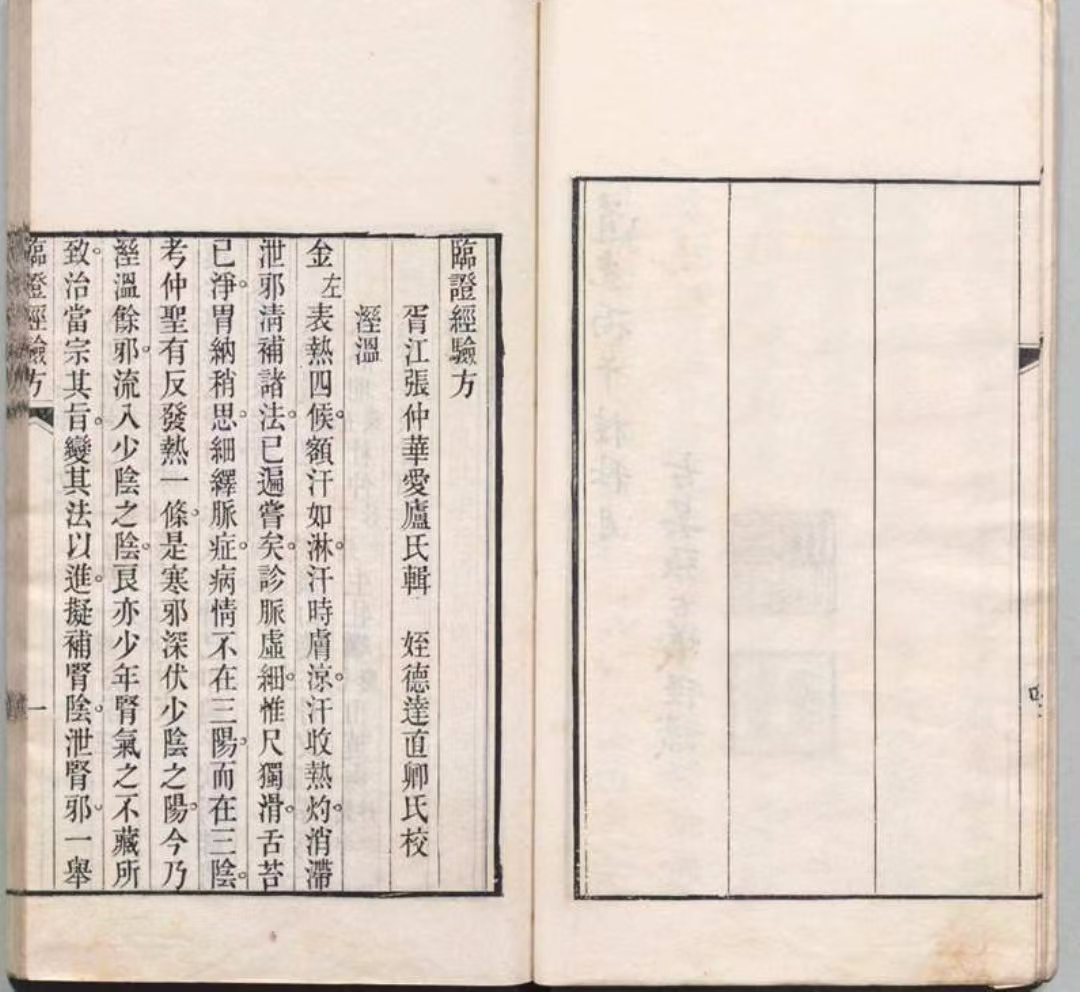 臨證經驗方
胥江張仲華愛廬氏輯　姪德達直卿氏校
溼溫
金左表熱四候。額汗如淋。汗時膚涼。汗收熱灼。消滯
泄邪淸補諸法。已遍嘗矣。診脈虛細。惟尺獨滑。舌苔
已淨。胃納稍思。細繹脈症。病情不在三陽。而在三陰。
考仲聖有反發熱一條。是寒邪深伏少陰之陽。今乃
溼溫餘邪。流入少陰之陰。良亦少年腎氣之不藏所
致。治當宗其旨。變其法以進。擬補腎陰。泄腎邪。一舉
臨證經驗方
一